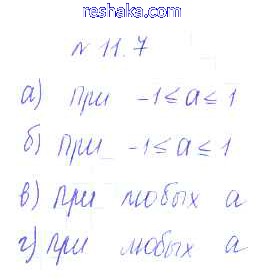 reshaka.com
№ 11.7
а) при -1 ≤ a ≤ 1
б) при -1 ≤ a ≤ 1
в) при любых a
г) при любых a